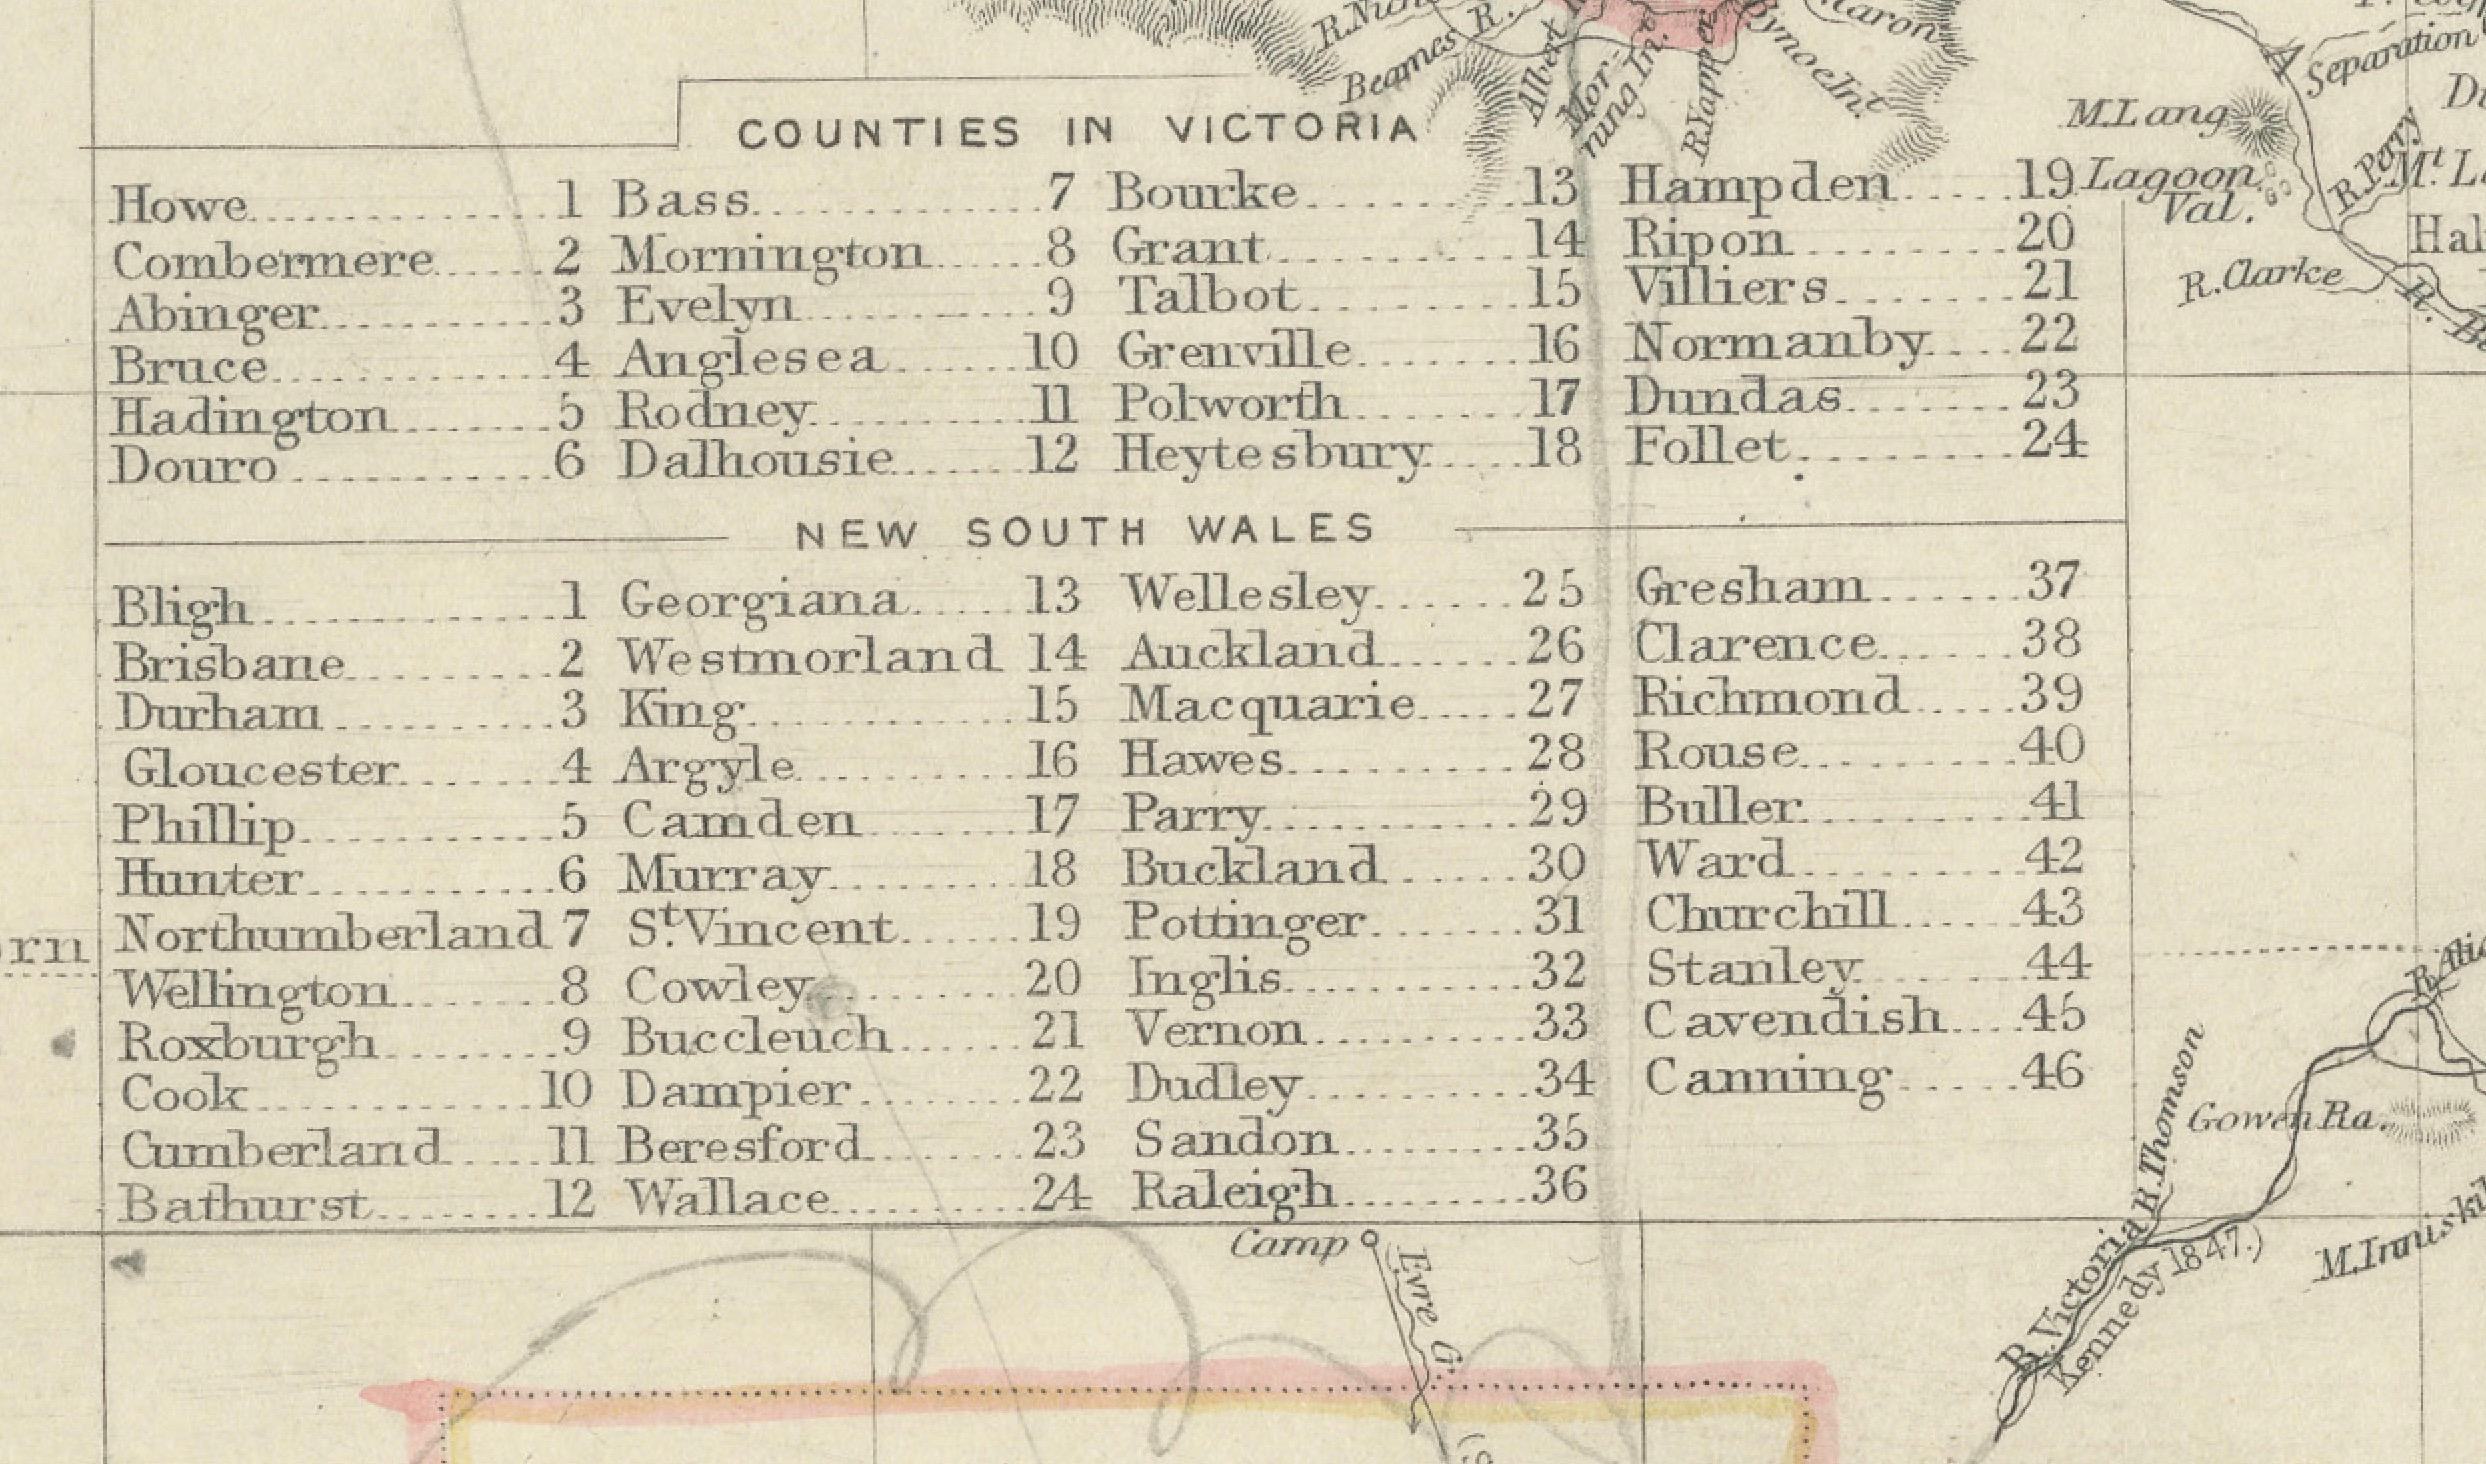 R. Nich
Beames R.
Albert R.
Morning In.
R. Yapper
Bynoe In.t
Maron
Separation
M. Lang
R. Perry
Lagoon Val.
Mt. L
Hal
R. Clarke
R. B
COUNTIES IN VICTORIA
Howe 1 Bass 7 Bourke 13 Hampden 19
Combermere 2 Mornington 8 Grant 14 Ripon 20
Abinger 3 Evelyn 9 Talbot 15 Villiers 21
Bruce 4 Anglesea 10 Grenville 16 Normanby 22
Hadington 5 Rodney 11 Polworth 17 Dundas 23
Douro 6 Dalhousie 12 Heytesbury 18 Follet 24
NEW SOUTH WALES
Bligh 1 Georgiana 13 Wellesley 25 Gresham 37
Brisbane 2 Westmorland 14 Auckland 26 Clarence 38
Durham 3 King 15 Macquarie 27 Richmond 39
Gloucester 4 Argyle 16 Hawes 28 Rouse 40
Phillip 5 Camden 17 Parry 29 Buller 41
Hunter 6 Murray 18 Buckland 30 Ward 42
Northumberland 7 St. Vincent 19 Pottinger 31 Churchill 43
Wellington 8 Cowley 20 Inglis 32 Stanley 44
Roxburgh 9 Buccleuch 21 Vernon 33 Cavendish 45
Cook 10 Dampier 22 Dudley 34 Canning 46
Cumberland 11 Beresford 23 Sandon 35
Bathurst 12 Wallace 24 Raleigh 36
rn
R. Alic
R. Thomson
Gowen Ra.
R. Victoria
Kennedy 1847.)
M. Inniskil
Camp
Eyre G.